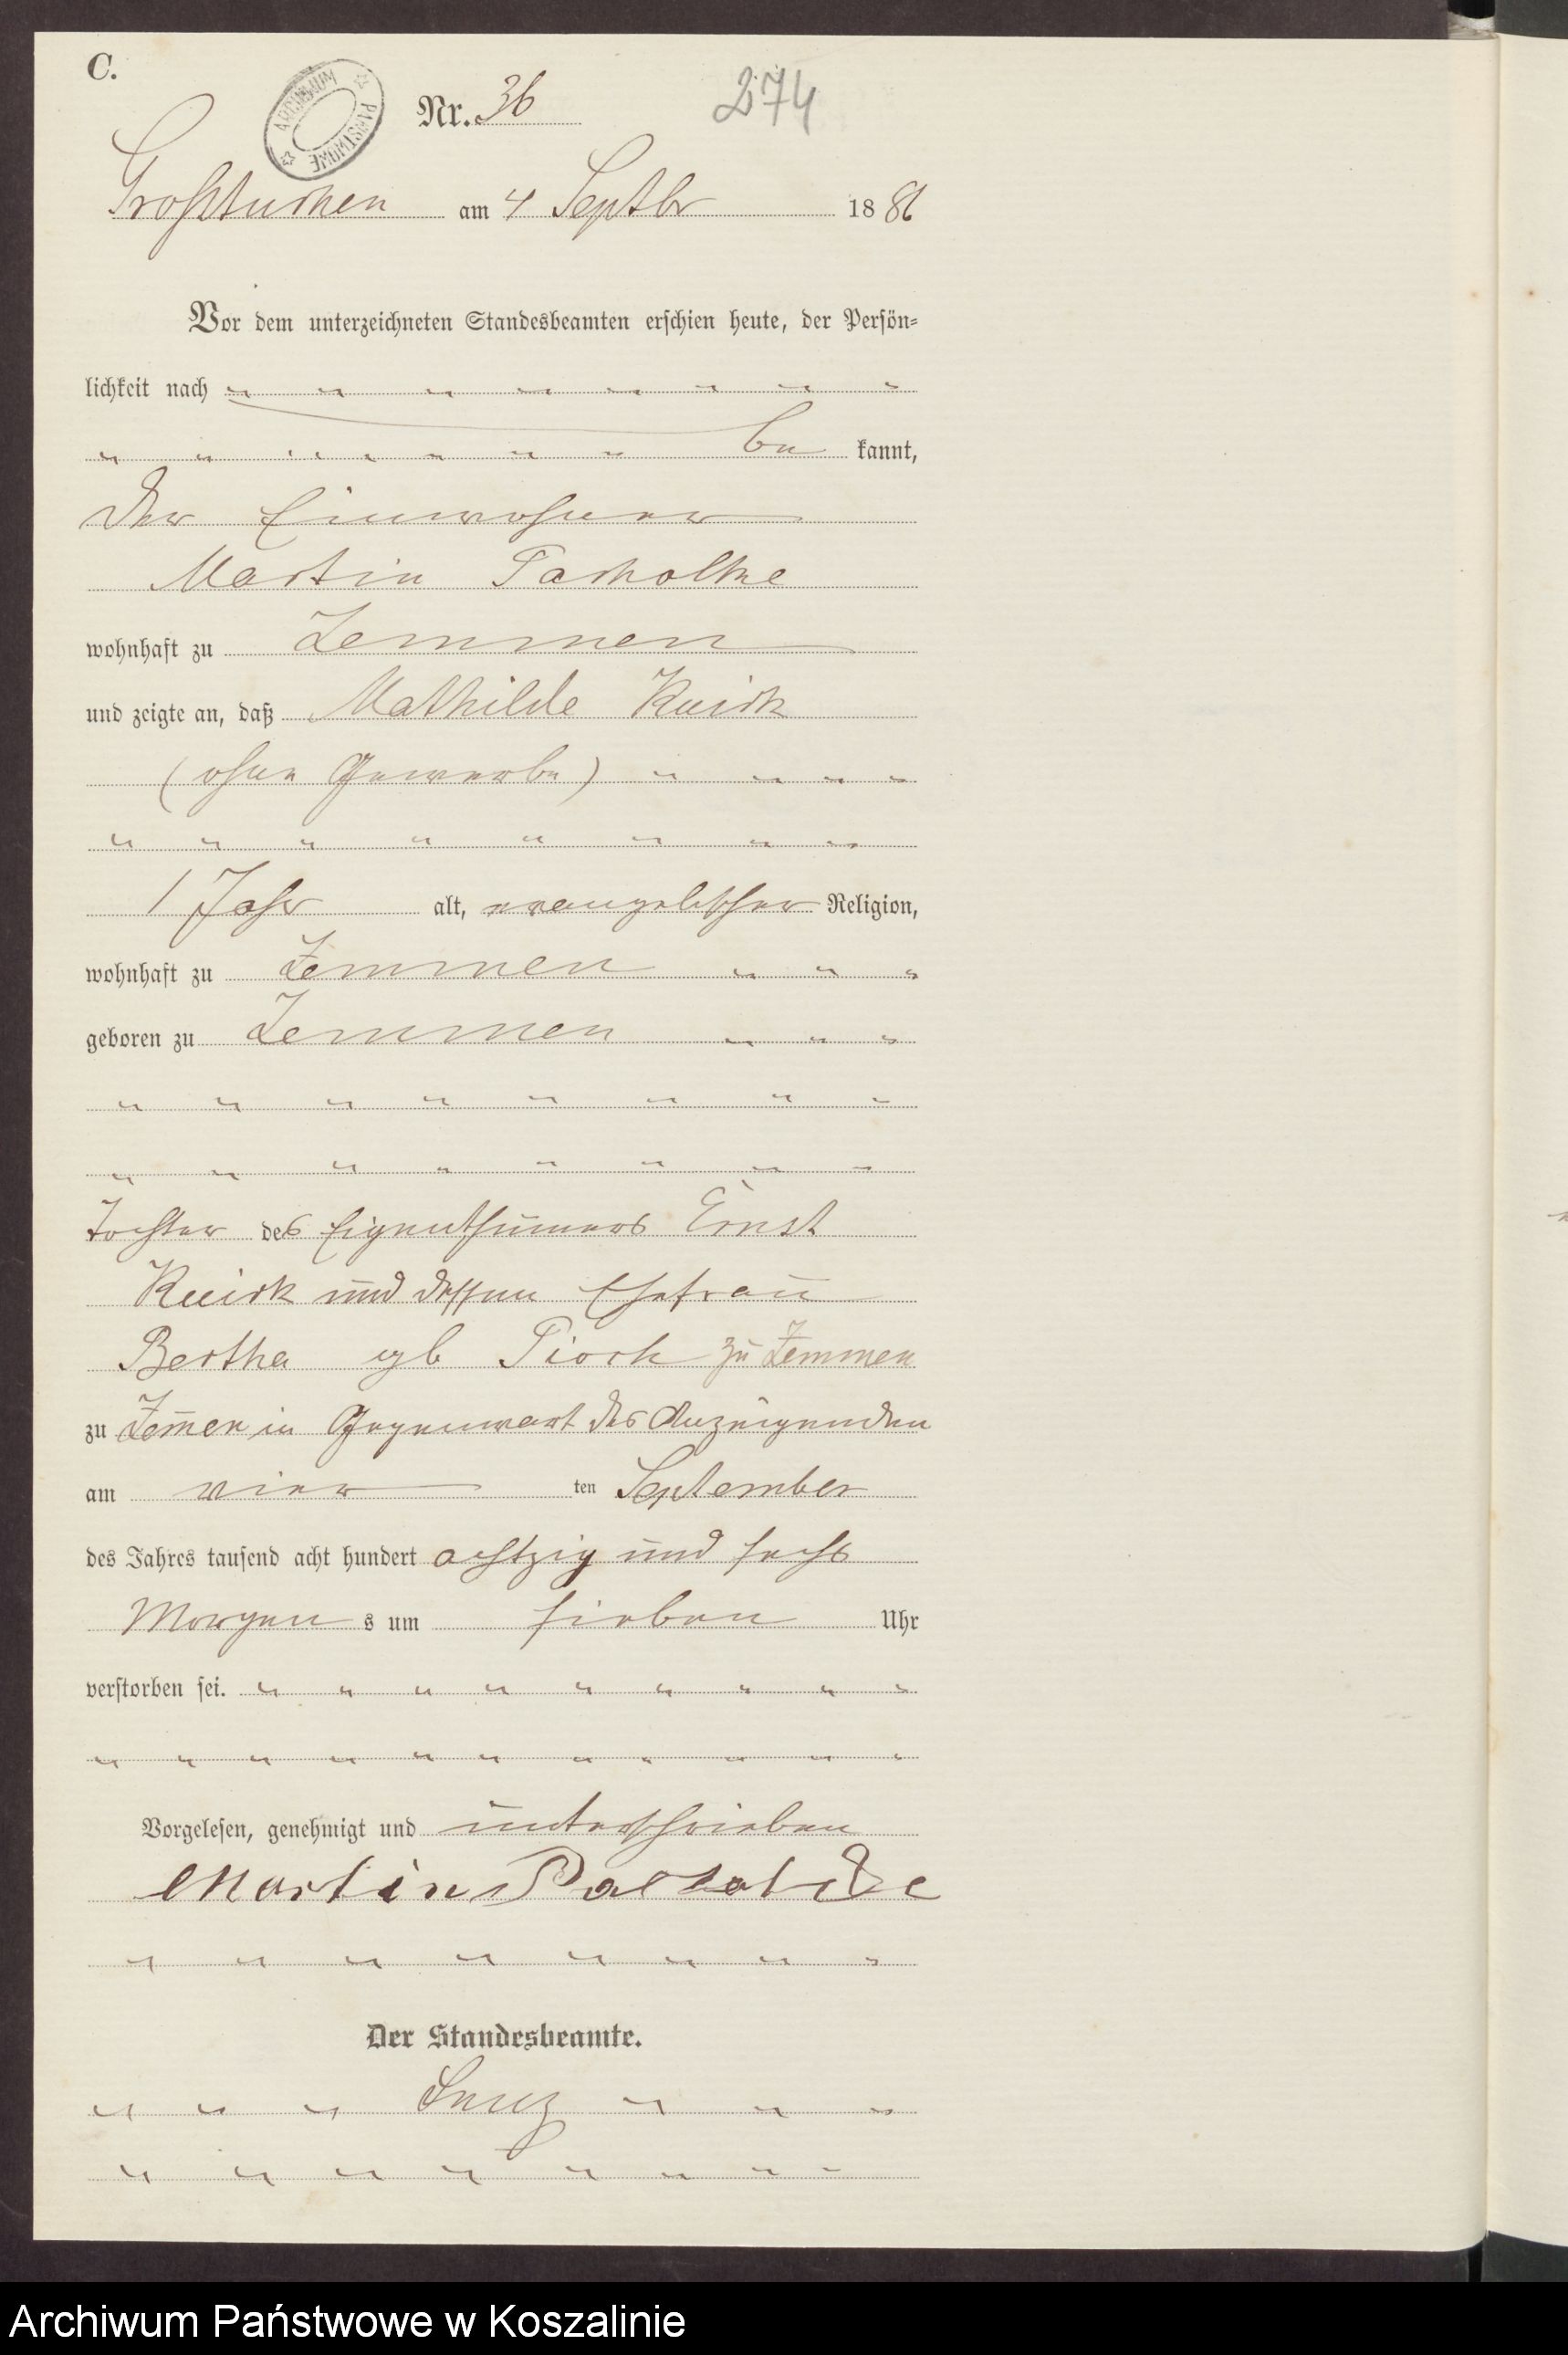 C.
ARCHIWUM PAŃSTWOWE
Nr. 36
274
Großtuchen am 4 Septbr 1886
Vor dem unterzeichneten Standesbeamten erschien heute, der Persön=
lichkeit nach
be kannt,
der Einwohner
Martin
wohnhaft zu Zemmen
und zeigte an, daß Mathilde Kuick
(ohne Gewerbe)
1 Jahr alt, evangelischer Religion,
wohnhaft zu Zemmen
geboren zu Zemmen
Tochter des Eigenthümers Ernst
Kuick und dessen Ehefrau
Bertha gb Pioch zu Zemmen
zu Zem̄en in Gegenwart des Anzeigenden
am vier ten September
des Jahres tausend acht hundert achtzig und sechs
Morgen s um sieben Uhr
verstorben sei.
Vorgelesen, genehmigt und unterschrieben
Martin
Der Standesbeamte.
Archiwum Państwowe w Koszalinie